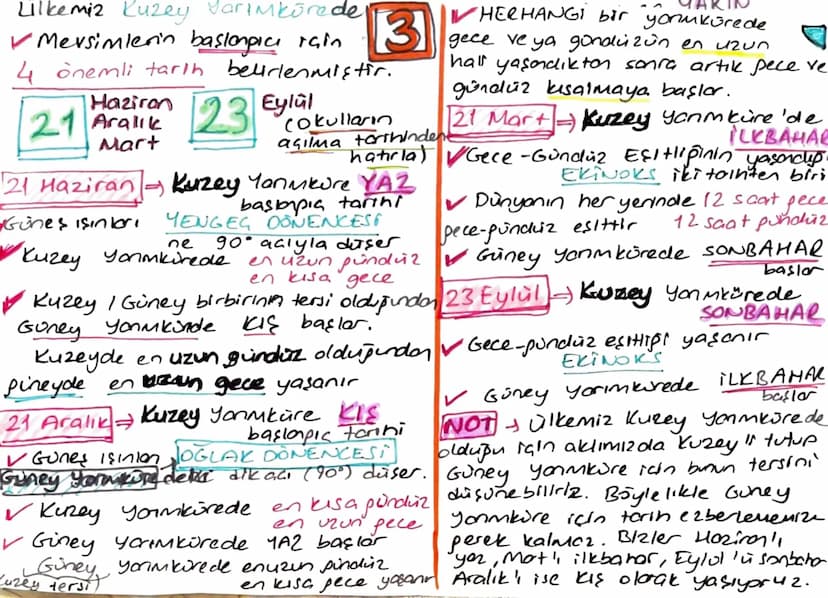 Ülkemiz Kuzey Yarımkürede
✓ Mevsimlerin başlangıcı için
4 önemli tarih belirlenmiştir.
3
21 Haziran
Aralık
Mart
23 Eylül
(okulların
açılma tarihinden
hatırla)
21 Haziran → Kuzey Yarımküre YAZ
başlangıç tarihi
Güneş ışınları YENGEÇ DÖNENCESİ
ne 90° açıyla düşer
✓ Kuzey Yarımkürede en uzun gündüz
en kısa gece
✓ Kuzey / Güney birbirinin tersi olduğundan
Güney Yarımkürede KIŞ başlar.
Kuzeyde en uzun gündüz olduğundan
güneyde en uzun gece yaşanır
21 Aralık → Kuzey Yarımküre KIŞ
başlangıç tarihi
✓ Güneş ışınları OĞLAK DÖNENCESİ
Güney Yarımküredeki dik açı (90°) düşer.
✓ Kuzey Yarımkürede en kısa gündüz
en uzun gece
✓ Güney Yarımkürede YAZ başlar
Güney Yarımkürede en uzun gündüz
(Kuzey tersi) en kısa gece yaşanır
YAKIN
✓ HERHANGİ bir yarımkürede
gece veya gündüzün en uzun
hali yaşandıktan sonra artık gece ve
gündüz kısalmaya başlar.
21 Mart → Kuzey Yarımküre'de
İLKBAHAR
✓ Gece-Gündüz Eşitliğinin yaşandığı
EKİNOKS iki tarihten biri
✓ Dünyanın her yerinde 12 saat gece
gece-gündüz eşittir 12 saat gündüz
✓ Güney Yarımkürede SONBAHAR
başlar
23 Eylül → Kuzey Yarımkürede
SONBAHAR
✓ Gece-gündüz eşitliği yaşanır
EKİNOKS
✓ Güney Yarımkürede İLKBAHAR
başlar
NOT → Ülkemiz Kuzey Yarımkürede
olduğu için aklımızda Kuzey'i tutup
Güney Yarımküre için bunun tersini
düşünebiliriz. Böylelikle Güney
Yarımküre için tarih ezberlememize
gerek kalmaz. Bizler Haziran'ı
yaz, Mart'ı ilkbahar, Eylül'ü sonbahar
Aralık'ı ise kış olarak yaşıyoruz.